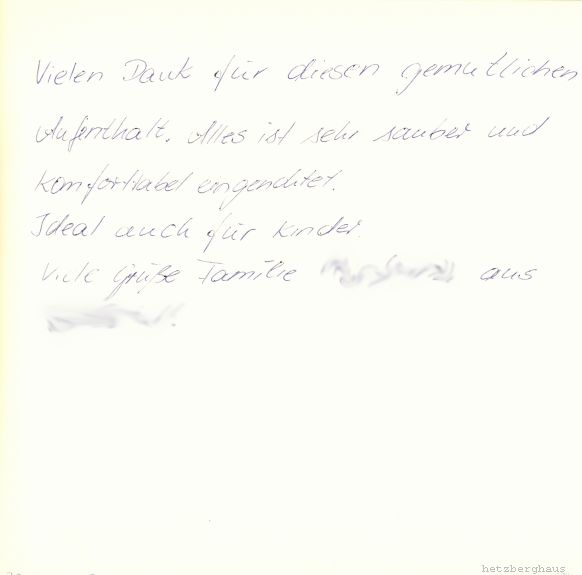 Vielen Dank für diesen gemütlichen
Aufenthalt. Alles ist sehr sauber und
komfortabel eingerichtet.
Ideal auch für Kinder.
Viele Grüße Familie aus
hetzberghaus